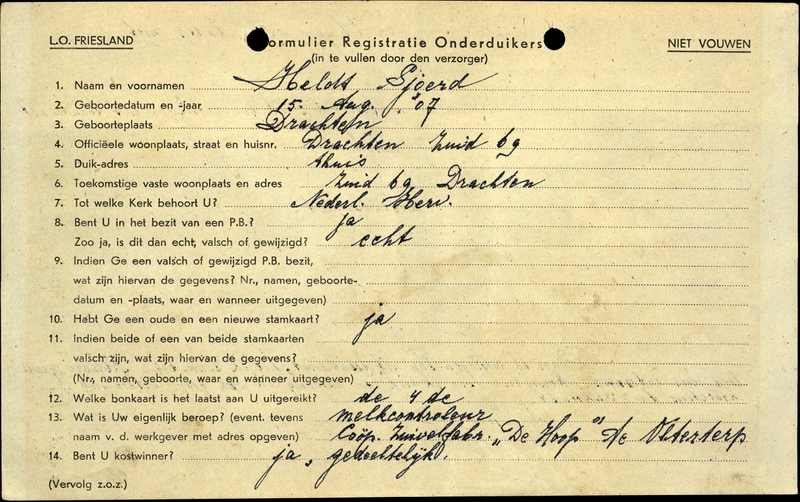 L.O. FRIESLAND
Formulier Registratie Onderduikers
NIET VOUWEN
(in te vullen door den verzorger)
1. Naam en voornamen Heldt Sjoerd
2. Geboortedatum en -jaar 15 Aug. '07
3. Geboorteplaats Drachten
4. Officiëele woonplaats, straat en huisnr. Drachten Zuid 69
5. Duik-adres thuis
6. Toekomstige vaste woonplaats en adres Zuid 69 Drachten
7. Tot welke Kerk behoort U? Nederl. Herv.
8. Bent U in het bezit van een P.B.? ja
Zoo ja, is dit dan echt, valsch of gewijzigd? echt
9. Indien Ge een valsch of gewijzigd P.B. bezit,
wat zijn hiervan de gegevens? Nr., namen, geboorte-
datum en -plaats, waar en wanneer uitgegeven)
10. Hebt Ge een oude en een nieuwe stamkaart? ja
11. Indien beide of een van beide stamkaarten
valsch zijn, wat zijn hiervan de gegevens?
(Nr., namen, geboorte, waar en wanneer uitgegeven)
12. Welke bonkaart is het laatst aan U uitgereikt? de 4 de
13. Wat is Uw eigenlijk beroep? (event. tevens melkcontroleur
naam v. d. werkgever met adres opgeven) Coöp. Zuivelfabr. „De Hoop" te Ureterp
14. Bent U kostwinner? ja, gedeeltelijk.
(Vervolg z.o.z.)